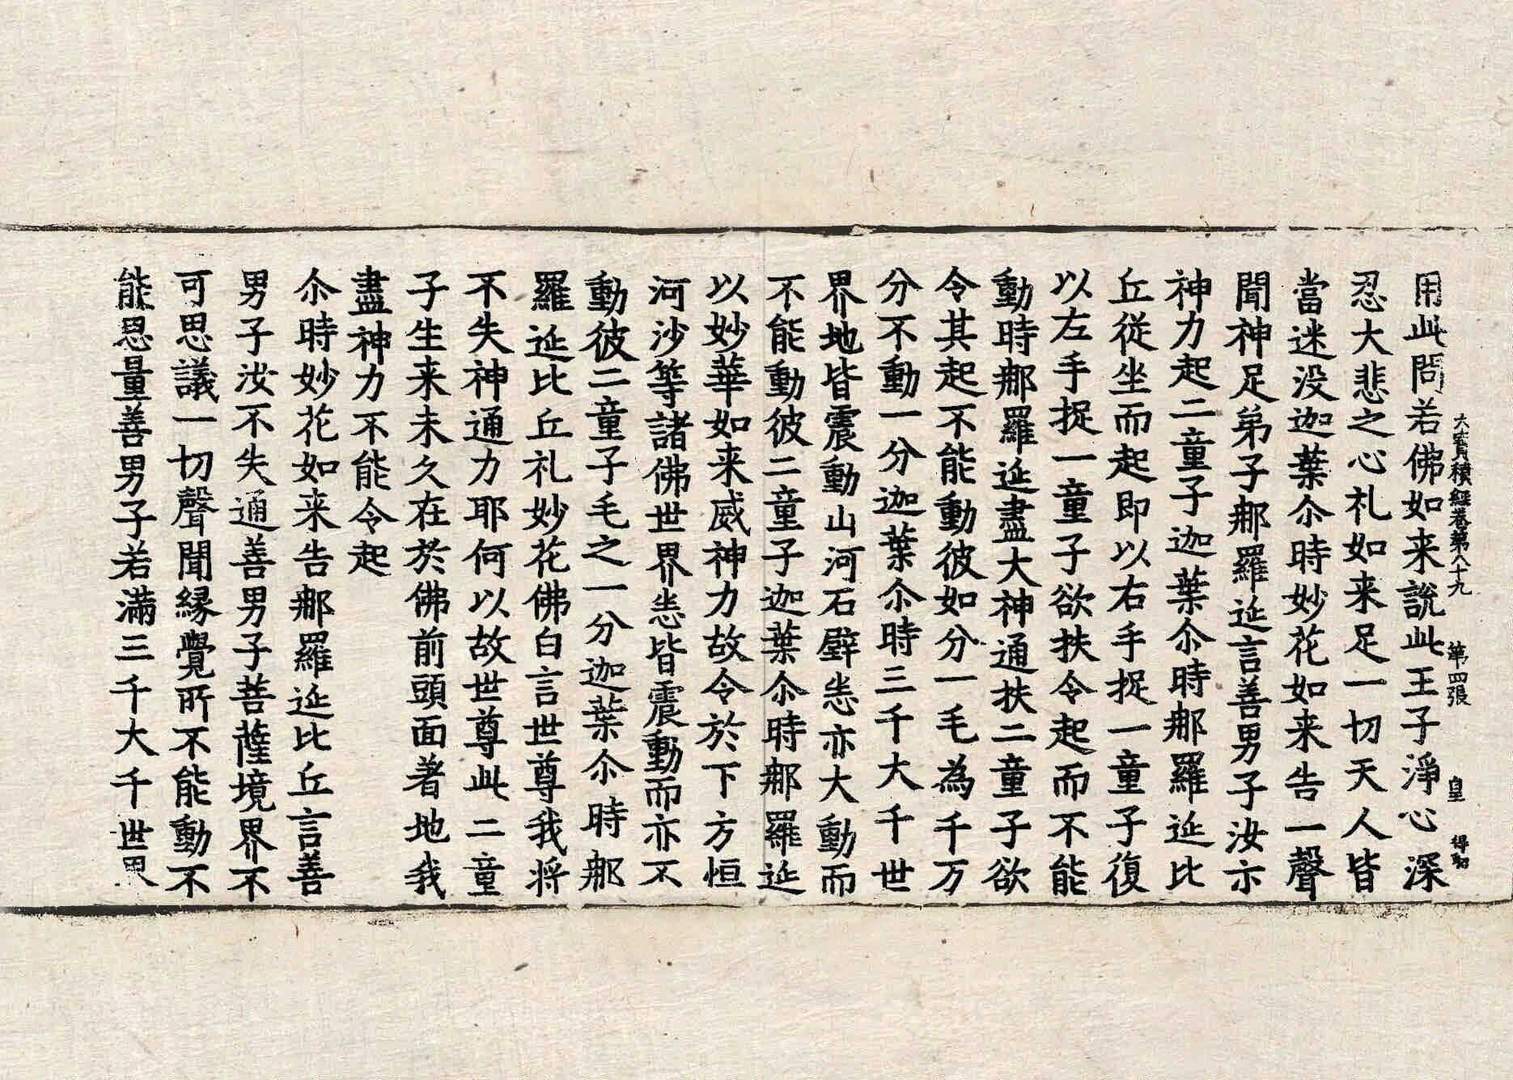 大寳積經卷第八十九 第四張 皇 得和
用此問若佛如来說此王子淨心深
忍大悲之心礼如来足一切天人皆
當迷没迦葉尒時妙花如来告一聲
聞神足弟子𨙻羅延言善男子汝示
神力起二童子迦葉尒時𨙻羅延比
丘従坐而起即以右手捉一童子復
以左手捉一童子欲扶令起而不能
動時𨙻羅延盡大神通扶二童子欲
令其起不能動彼如分一毛為千万
分不動一分迦葉尒時三千大千世
界地皆震動山河石壁悉亦大動而
不能動彼二童子迦葉尒時𨙻羅延
以妙華如来威神力故令於下方恒
河沙等諸佛世界悉皆震動而亦不
動彼二童子毛之一分迦葉尒時𨙻
羅延比丘礼妙花佛白言世尊我將
不失神通力耶何以故世尊此二童
子生来未久在於佛前頭面著地我
盡神力不能令起
尒時妙花如来告𨙻羅延比丘言善
男子汝不失通善男子菩薩境界不
可思議一切聲聞縁覺所不能動不
能思量善男子若滿三千大千世界